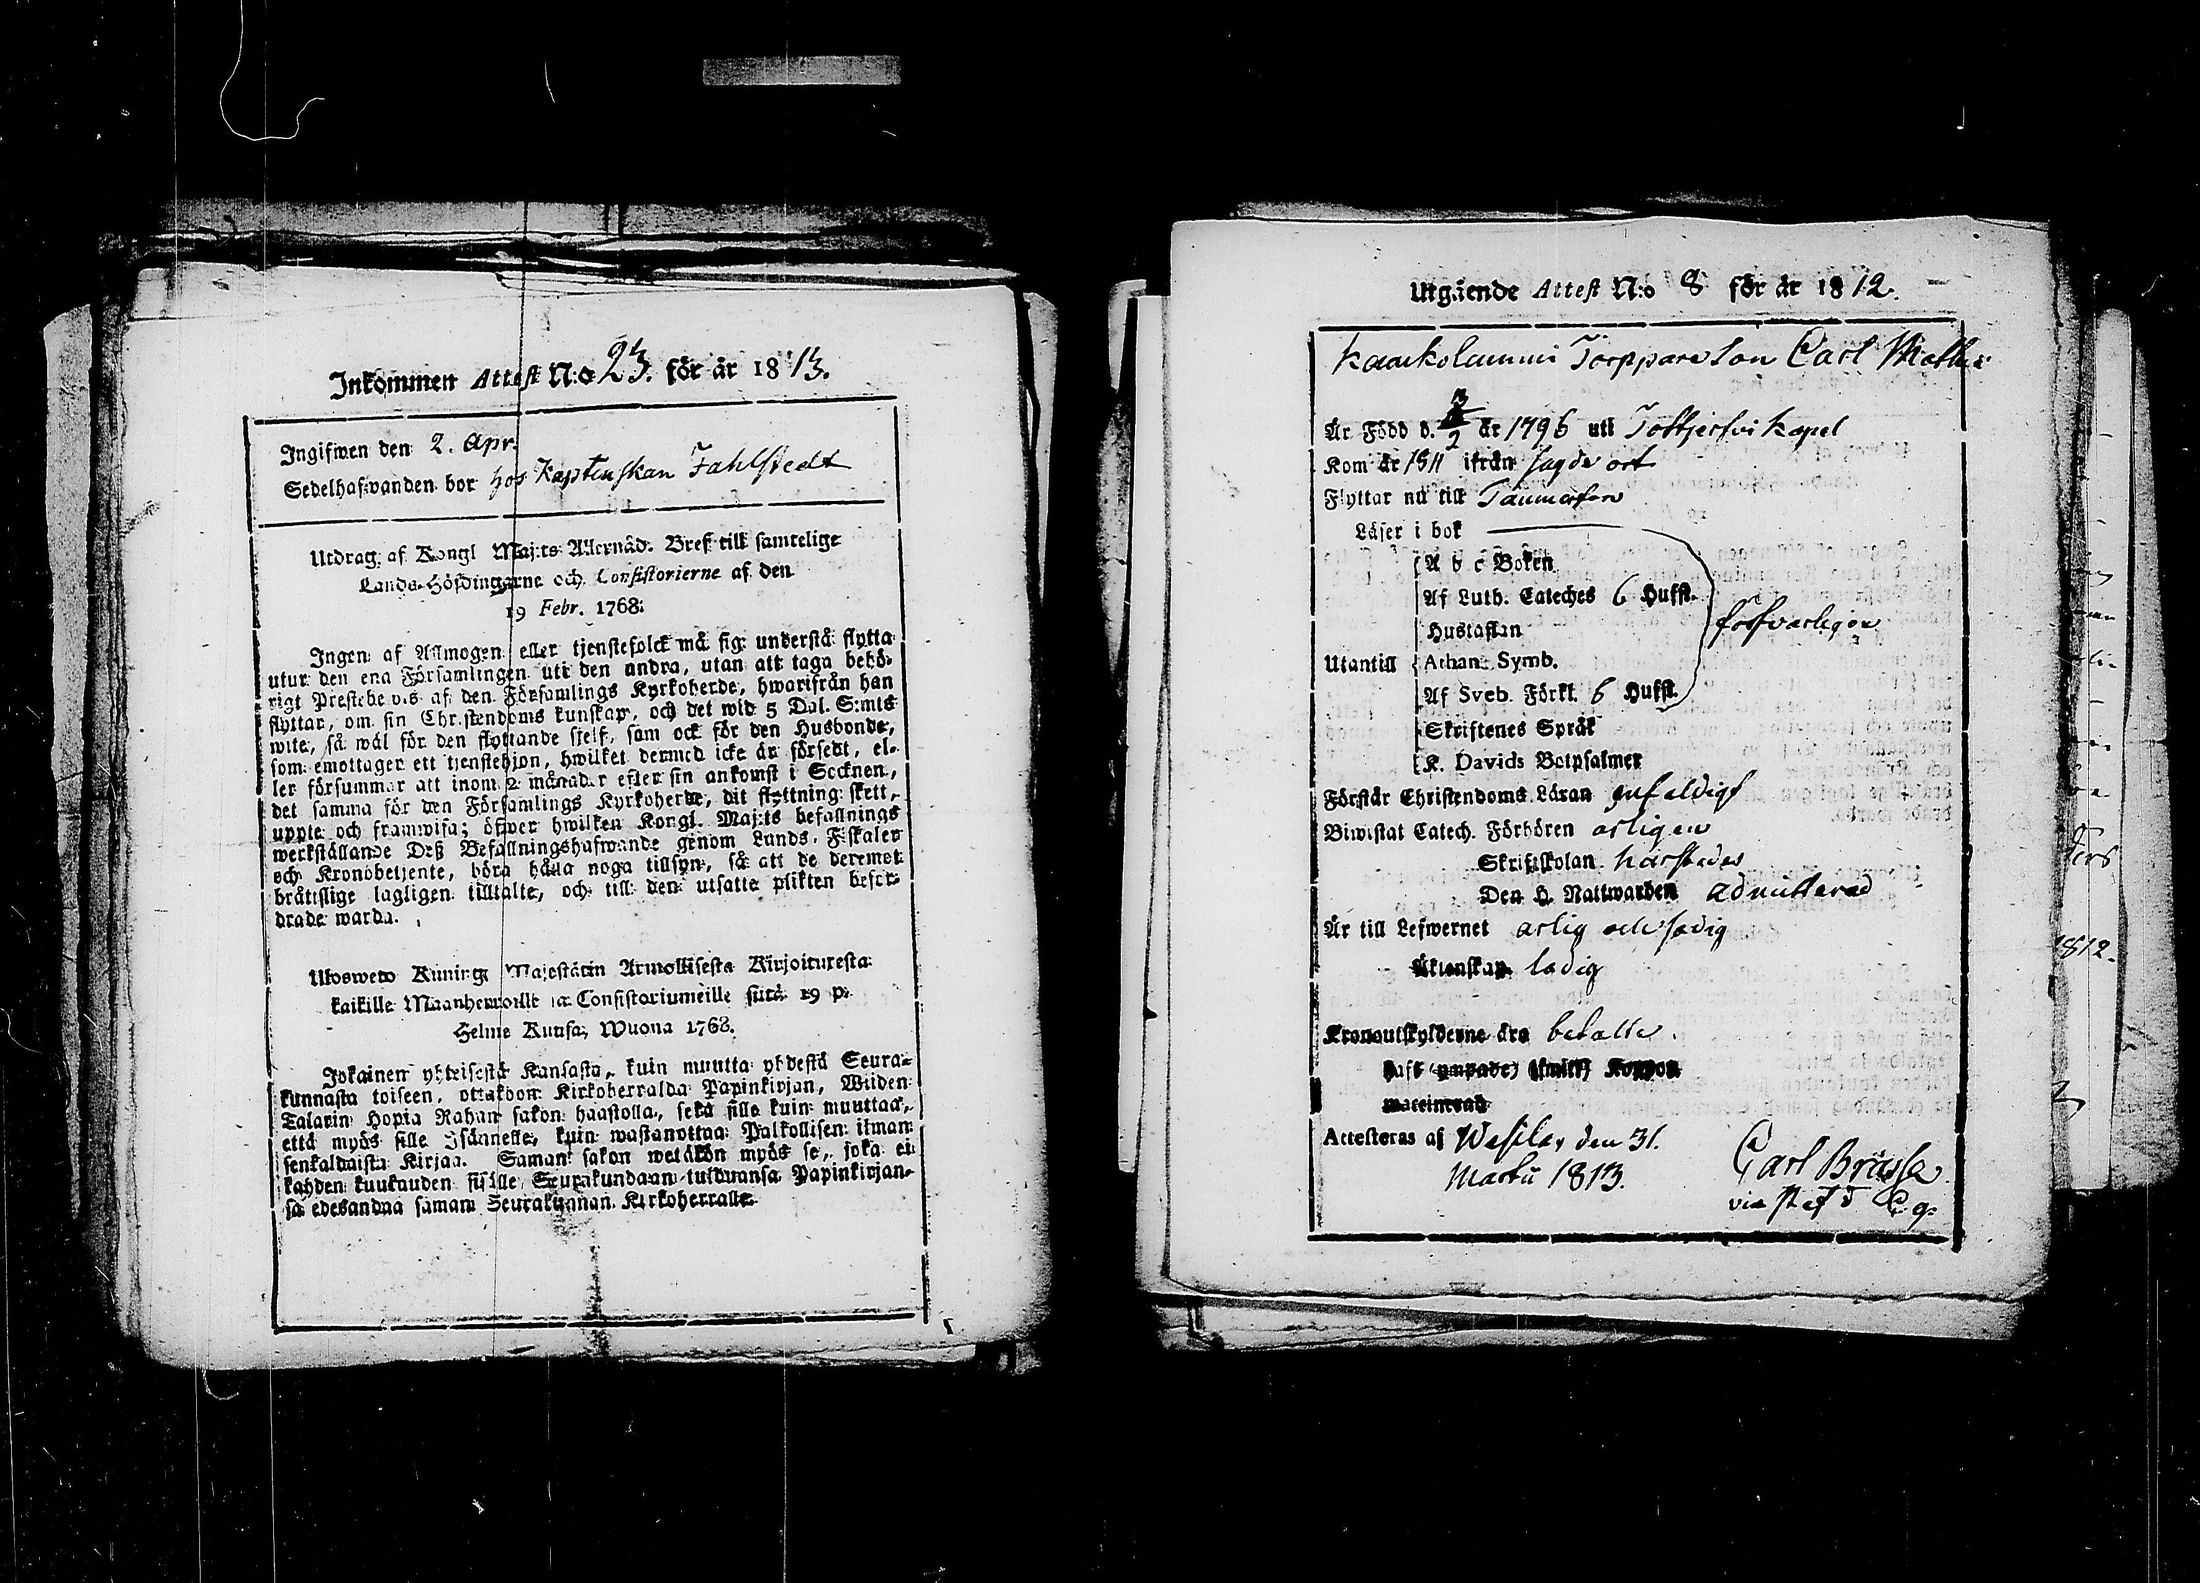 Inkommen Attest N:o 23. för år 1813.
Ingifwen den 2. Apr.
Sedelhafwanden bor hos Kaptenskan Fahlstedt
Utdrag af Kongl Maj:ts Allernåd. Bref till samtelige
Lands-Höfdingarne och Consistorierne af den
19 Febr. 1768.
Ingen af Allmogen eller tjenstefolck må sig understå flytta
utur den ena Församlingen uti den andra, utan att taga behö-
rigt Prestebevis af den Församlings Kyrkoherde, hwarifrån han
flyttar, om sin Christendoms kunskap, och det wid 5 Dal. S:mts
wite, så wäl för den flyttande sjelf, som ock för den Husbonde,
som emottager ett tjenstehjon, hwilket dermed icke är försedt, el-
ler försummar att inom 2 månader efter sin ankomst i Socknen,
det samma för den Församlings Kyrkoherde, dit flyttning skett,
uppte och framwisa; öfwer hwilken Kongl. Maj:ts befallnings
werkställande Deß Befallningshafwande genom Lands-Fiskaler
och Kronobetjente, böra hålla noga tillsyn, så att de deremot
bråttslige lagligen tilltalte, och till den utsatte plikten befor-
drade warda.
Ulosweto Kuning: Majestätin Armollisesta Kirjoituxesta
kaikille Maanherroille ja Consistoriumeille siitä 19 p:
Helme Kuusa, Wuona 1768.
Jokainen yhteisestä Kansasta, kuin muutta yhdestä Seura-
kunnasta toiseen, ottakoon Kirkoherralda Papinkirjan, Wiiden
Talarin Hopia Rahan sakon haastolla, sekä sille kuin muuttaa,
että myös sille Isännelle, kuin wastanottaa Palkollisen ilman
senkaldaista Kirjaa. Saman sakon wetäkön myös se, joka ei
kahden kuukauden sisälle Seurakundaan tulduansa Papinkirjan-
sa edesandaa saman Seurakunnan Kirkoherralle.
Utgående Attest N:o 8 för år 1812.
Kaarkolammi Torppare Son Carl Mattss
Är Född d. 3/2 år 1796 uti Tottjerfvi Kapel
Kom år 1811 ifrån sagde ort
Flyttar nu till
Läser i bok
A b c Boken
Af Luth. Cateches 6 Hufst.
Hustaflan försvarligen
Utantill Athan. Symb.
Af Sveb. Förkl. 6 Hufst.
Skriftenes Språk
K. Davids Botpsalmer
Förstår Christendoms Läran enfaldigt
Biwistat Catech. Förhören årligen
Skriftskolan härstädes
Den H. Nattwarden admitterad
Är till Lefwernet ärlig och sedig
Äktenskap ledig
Kronoutskylderne äro betalte.
haft (ympade) (smitt) Koppor
Attesteras af Wesilax den 31.
Martii 1813. Carl Brässe